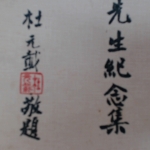 先生紀念集
杜元載敬題